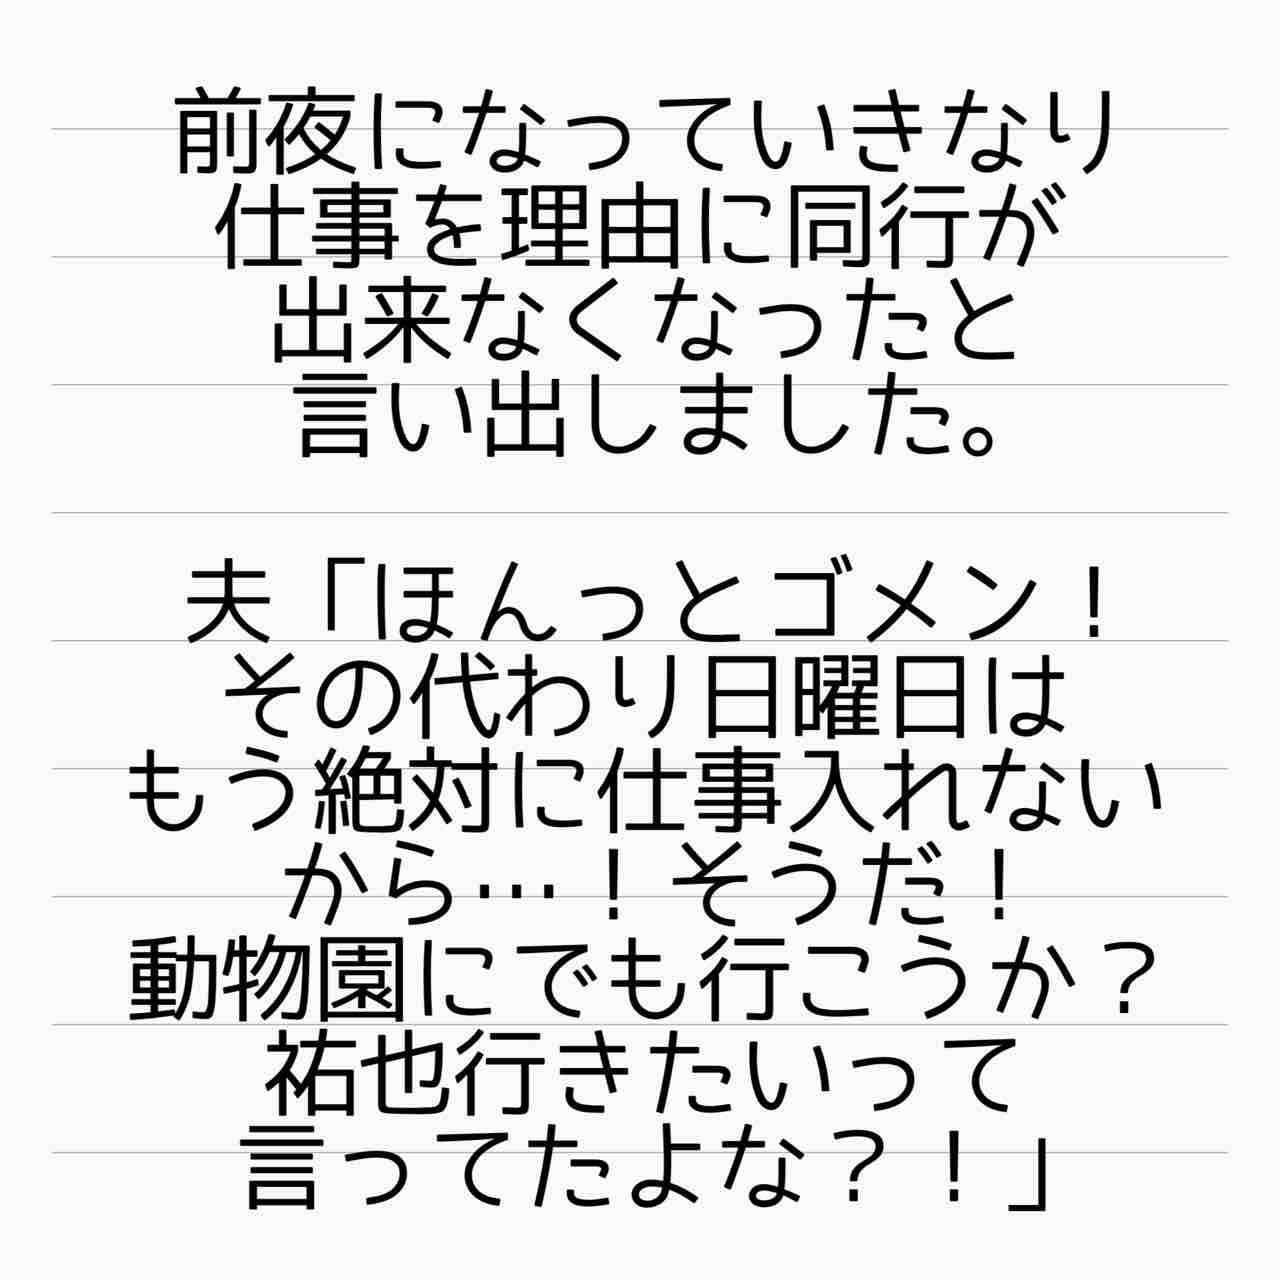 前夜になっていきなり
仕事を理由に同行が
出来なくなったと
言い出しました。
夫「ほんっとゴメン！
その代わり日曜日は
もう絶対に仕事入れない
から…！そうだ！
動物園にでも行こうか？
祐也行きたいって
言ってたよな？！」